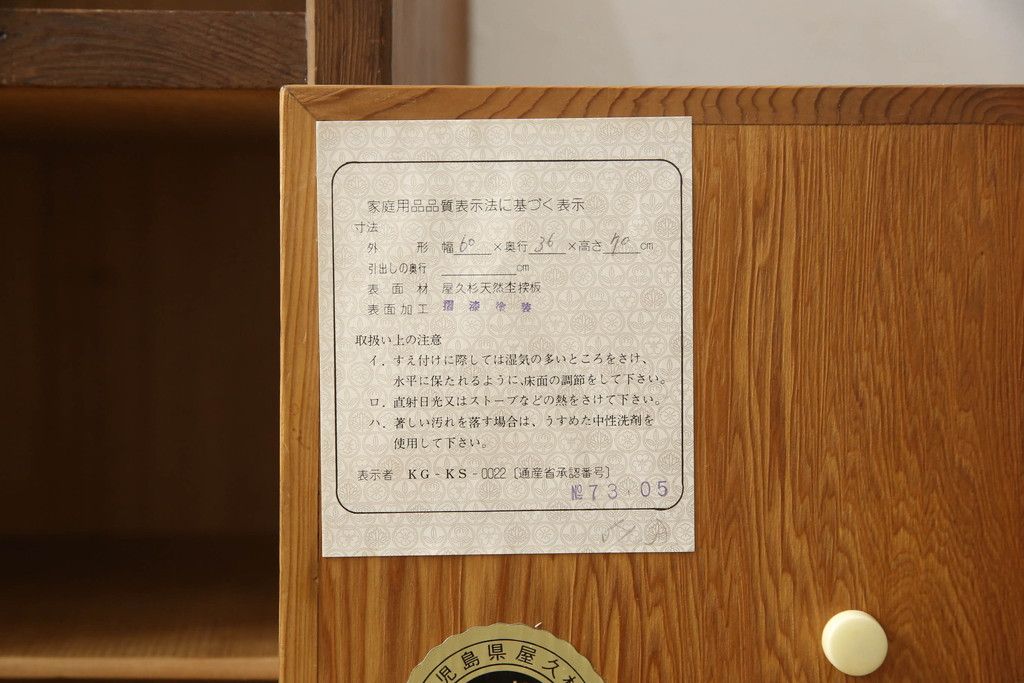 家庭用品品質表示法に基づく表示
寸法
外形 幅60×奥行36×高さ70cm
引出しの奥行 cm
表面材 屋久杉天然杢接板
表面加工 摺漆塗装
取扱い上の注意
イ．すえ付けに際しては湿気の多いところをさけ、
水平に保たれるように、床面の調節をして下さい。
ロ．直射日光又はストーブなどの熱をさけて下さい。
ハ．著しい汚れを落す場合は、うすめた中性洗剤を
使用して下さい。
表示者 KG-KS-0022〔通産省承認番号〕
№73.05
児島県屋久杉